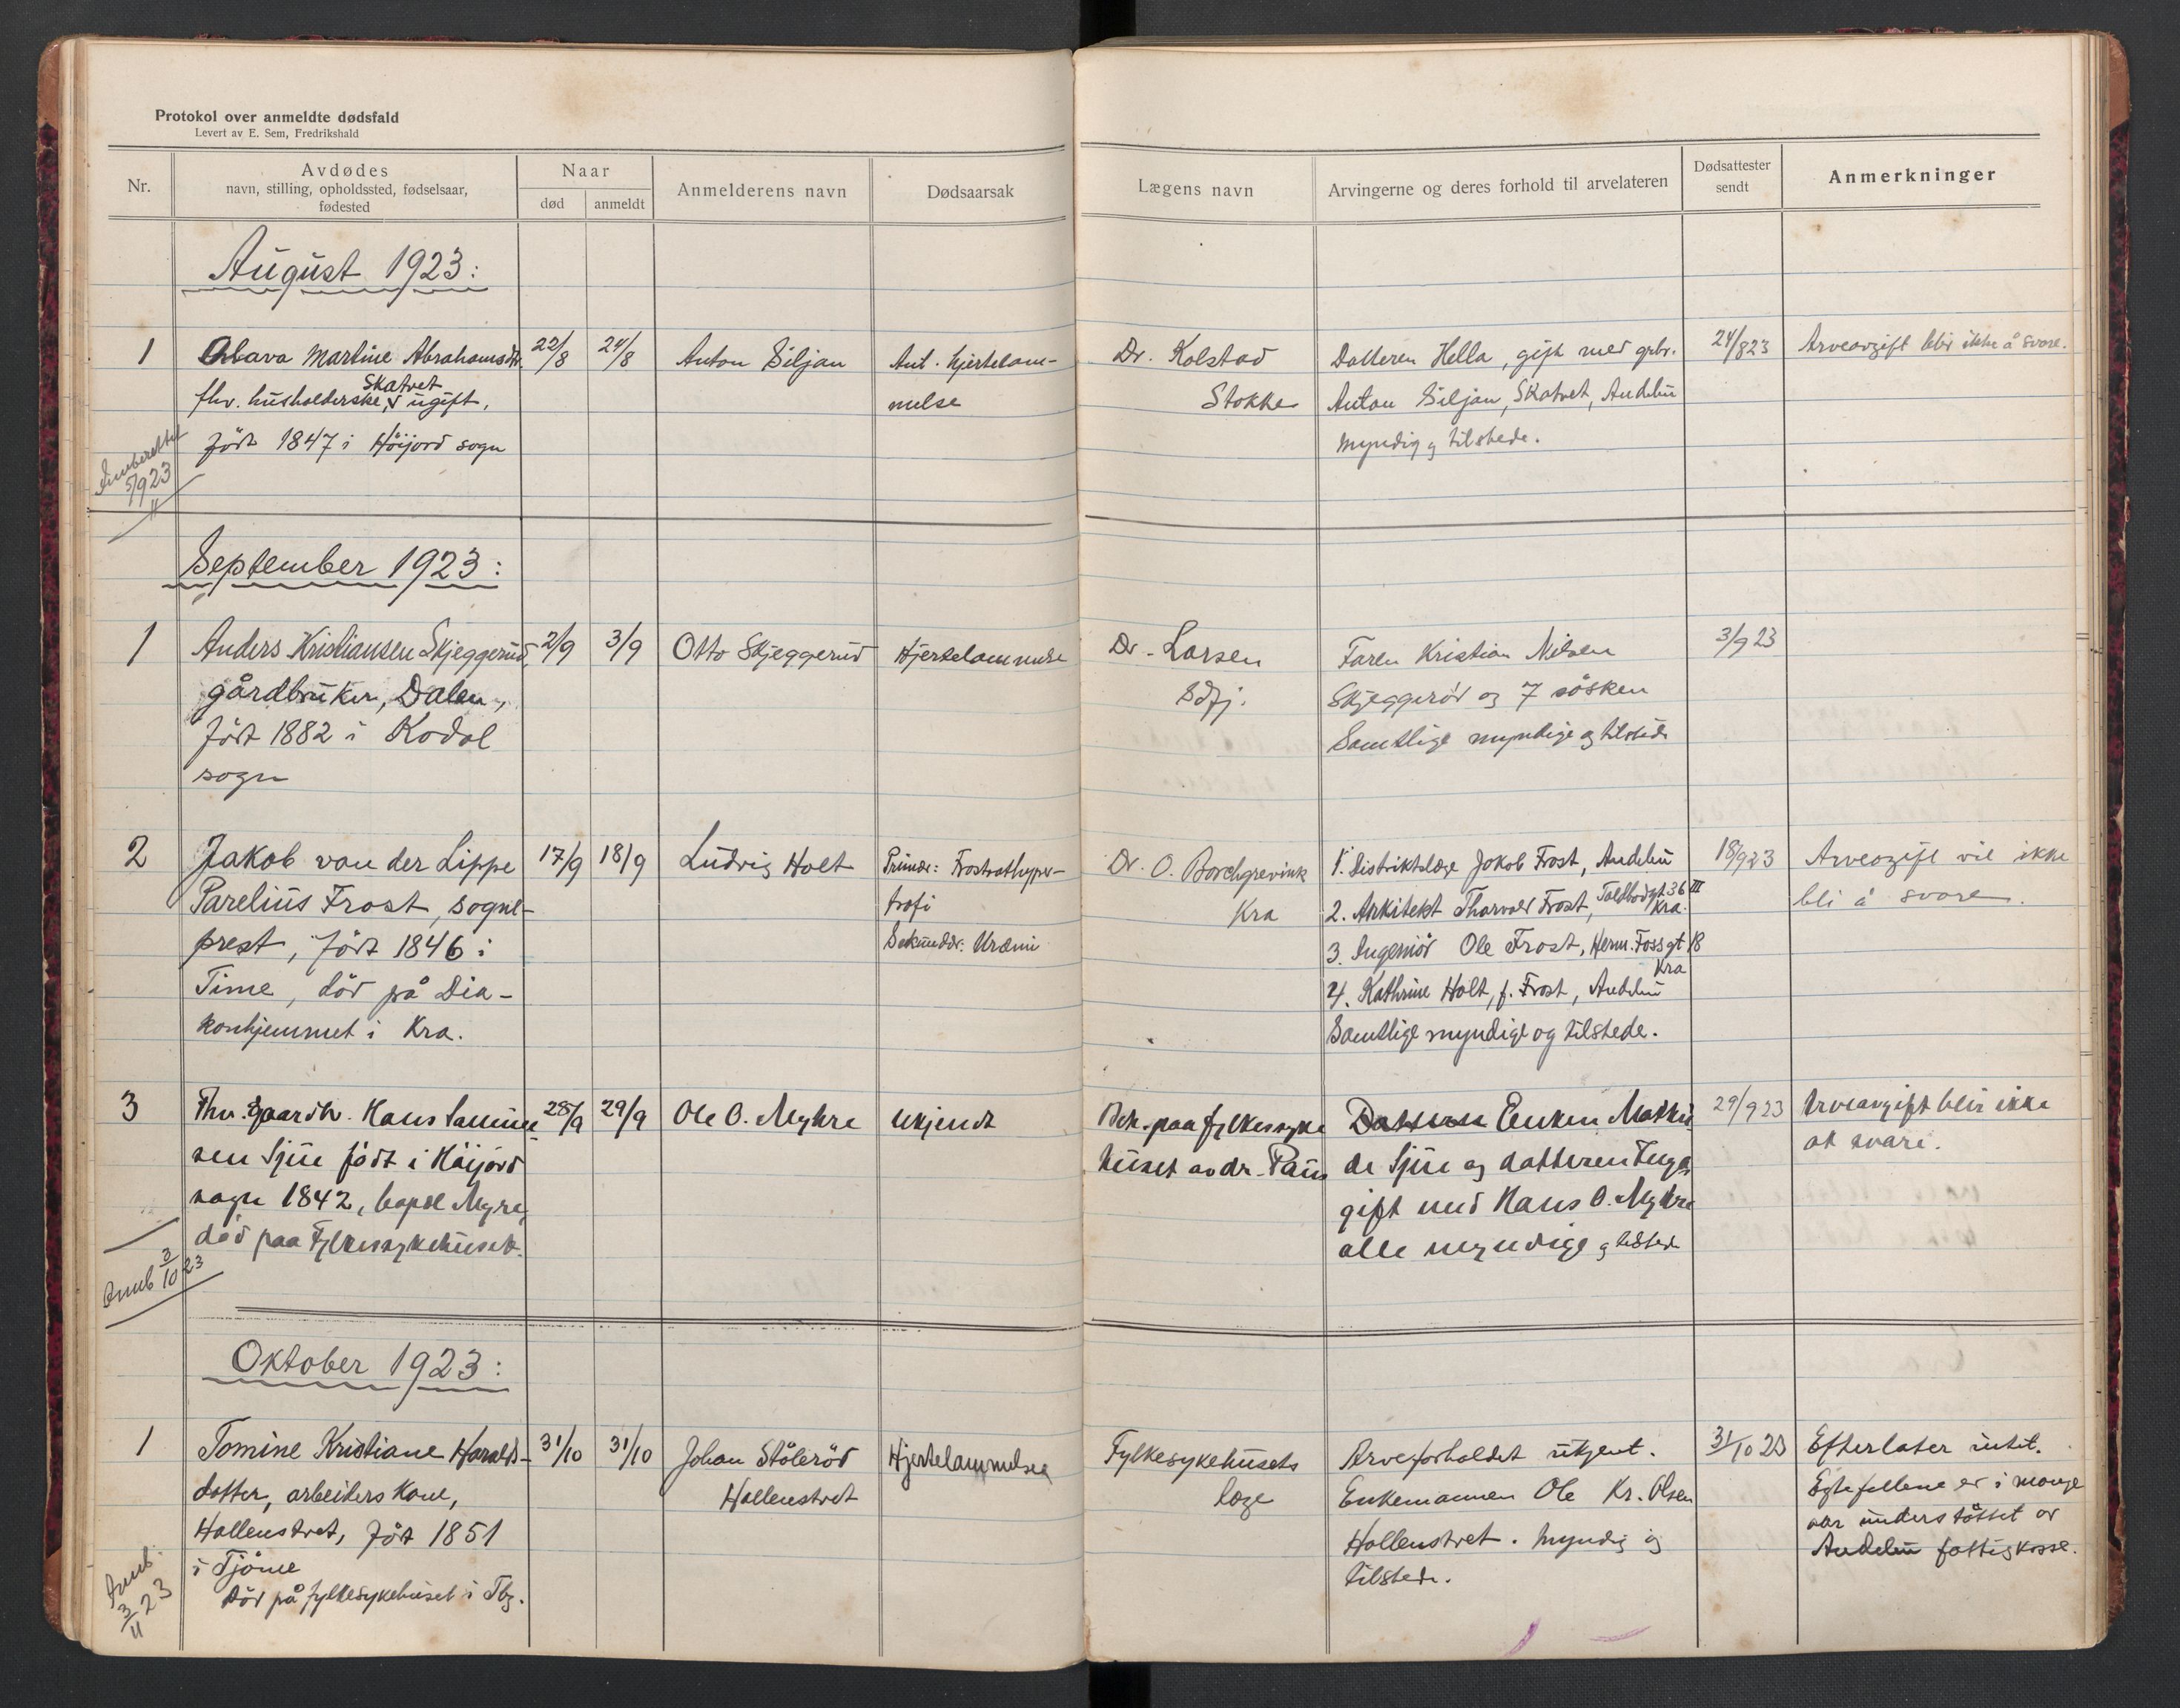 Protokol over anmeldte dødsfald
Levert av E. Sem, Fredrikshald
Nr.
Avdødes
navn, stilling, opholdssted, fødselsaar,
fødested
Naar
død
anmeldt
Anmelderens navn
Dødsaarsak
Lægens navn
Arvingerne og deres forhold til arvelateren
Dødsattester
sendt
Anmerkninger
August 1923:
1
Olava Martine Abrahamsdtr.
Skatvet
fhv. husholderske, ugift,
født 1847 i Höijord sogn
22/8
24/8
Anton Siljan
Ant. hjertelam-
melse
Dr. Kolstad
Stokke
Datteren Hella, gift med grbr.
Anton Siljan, Skatvet, Andebu
myndig og tilstede.
24/8 23
Arveavgift blir ikke å svare.
Innberettet
5/9 23
September 1923:
1
Anders Kristiansen Skjeggerud,
gårdbruker, Dalen,
født 1882 i Kodal
sogn
2/9
3/9
Otto Skjeggerud
Hjertelammelse
Dr. Larsen
Sdfj.
Faren Kristian Nilsen
Skjeggerød og 7 søsken
Samtlige myndige og tilstede
3/9 23
2
Jakob von der Lippe
Parelius Frost, sogne-
prest, født 1846 i
Time, död på Dia-
konhjemmet i Kra.
17/9
18/9
Ludvig Holt
Primær: Prostrathyper-
trofi
Sekundær: Uræmi
Dr. O. Borchgrevink
Kra
1. Distriktslæge Jakob Frost, Andebu
2. Arkitekt Thorvald Frost, Toldbodgt 36 III
Kra.
3. Ingeniör Ole Frost, Herm. Foss gt 18
Kra
4. Kathrine Holt, f. Frost, Andebu
Samtlige myndige og tilstede.
18/9 23
Arveavgift vil ikke
bli å svare.
3
Fhv. gaardbr. Hans
sen Sjue født i Höijord
sogn 1842, bopæl Myre,
död paa Fylkessykehuset.
28/9
29/9
Ole O. Myhre
Ukjendt
Beh. paa fylkessyke
huset av dr. Paus
Datteren Enken Mathil-
de Sjue og datteren
gift med Hans O. Myhre
alle myndige og tilstede
29/9 23
Arveavgift blir ikke
at svare.
Innb 3/10 23
Oktober 1923:
1
Tomine Kristiane Haralds-
datter, arbeiders kone,
Hallenstvet, født 1851
i Tjöme
Död på fylkesykehuset i Tbg.
31/10
31/10
Johan Stålerød
Hallenstvet
Hjertelammelse
Fylkesykehusets
læge
Arveforholdet ukjent.
Enkemannen Ole Kr. Olsen
Hallenstvet. Myndig og
tilstede.
31/10 23
Efterlater intet.
Egtefellene er i mange
aar understøttet av
Andebu fattigkasse.
Innb.
3/11 23